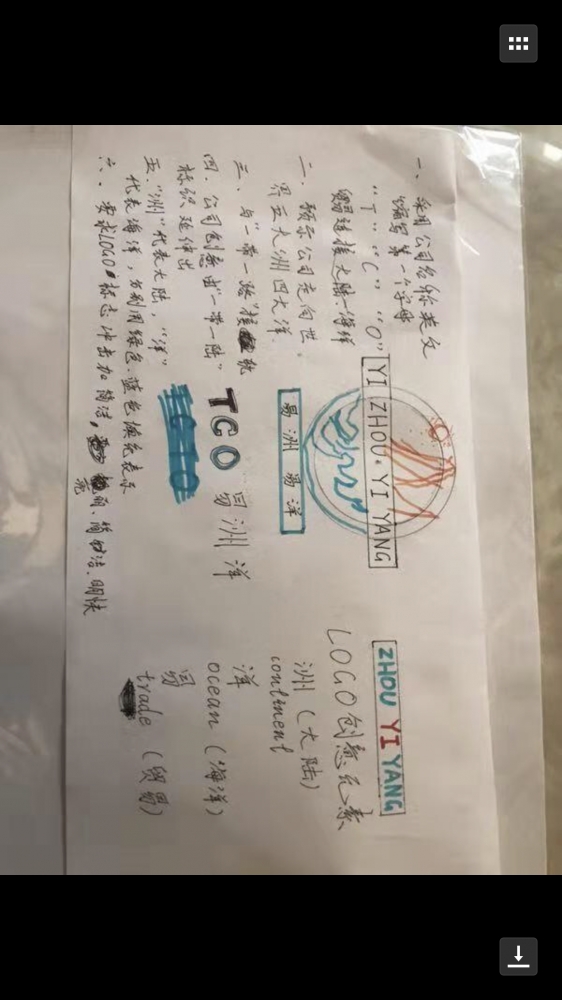 一、采用公司名称英文
缩写第一个字母
"T" "C" "O"
连接大陆海洋
二、预示公司走向世
界五大洲四大洋.
三、与"一带一路"接轨
四.公司创意由"一带一陆"
标识延伸出
五."洲"代表大陆,"洋"
代表海洋,分别用绿色.蓝色填充表示
六.要求LOGO标志冲击加简洁,亮丽、简洁.明快
YI ZHOU·YI YANG
易洲易洋
TCO 易洲洋
ZHOU YI YANG
LOGO创意元素
洲(大陆)
continent
洋
ocean(海洋)
易
trade(贸易)